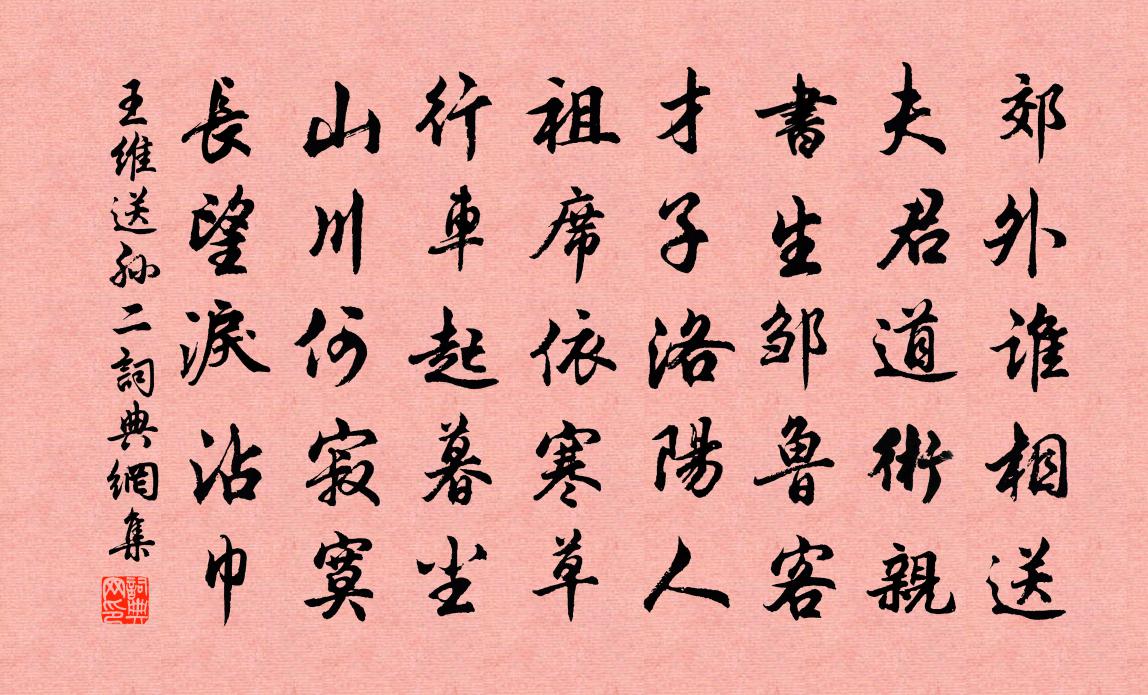 郊外誰相送
夫君道術親
書生邹魯客
才子洛陽人
祖席依寒草
行車起暮尘
山川何寂寞
長望淚沾巾
王維送孙二詞典網集
詞典网印